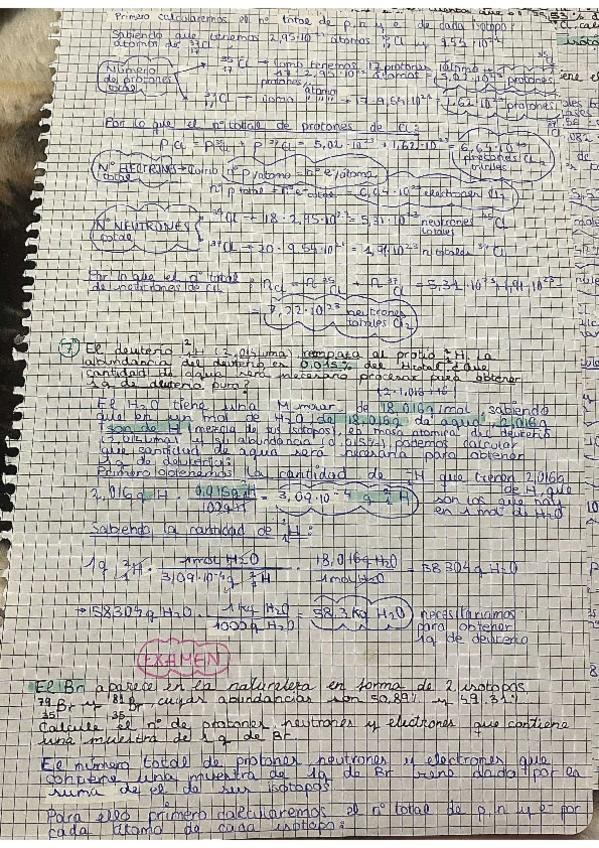 Primero calcularemos el nº total de p, n y e⁻ de cada isótopo
Sabiendo que tenemos 2,95·10²² átomos ³⁵₁₇Cl y 9,54·10²¹
átomos de ³⁷₁₇Cl
Número de protones total
³⁵₁₇Cl → como tenemos 17 protones/átomo
17 · 2,95·10²² átomos = 5,02·10²³ protones
³⁷₁₇Cl → como 17 · 9,54·10²¹ = 1,62·10²³ protones
Por lo que el nº total de protones de Cl:
p Cl = p ³⁵Cl + p ³⁷Cl = 5,02·10²³ + 1,62·10²³ = 6,64·10²³ protones Cl₂
Nº ELECTRONES total → Como nº p/átomo = nº e⁻/átomo
nº p total = nº e⁻ total = 6,64·10²³ electrones Cl₂
Nº NEUTRONES total
³⁵Cl → 18 · 2,95·10²² = 5,31·10²³ neutrones totales ³⁵Cl
³⁷Cl → 20 · 9,54·10²¹ = 1,91·10²³ n totales ³⁷Cl
Por lo que el nº total de neutrones de Cl: n Cl = n ³⁵Cl + n ³⁷Cl = 5,31·10²³ + 1,91·10²³
= 7,22·10²³ neutrones totales Cl₂
7 El deuterio ²₁H (2,014 uma) remplaza al protio ¹₁H. La
abundancia del deuterio es 0,015% del H total. ¿Que
cantidad de agua será necesario procesar para obtener
1g de deuterio puro?
(2·1,016+16)
El H₂O tiene una M molar de 18,016g/mol sabiendo
que en un mol de H₂O de 18,016g de agua 2,016g
son de H (mezcla de sus isótopos), la masa atómica del deuterio
(2,014uma) y su abundancia (0,015%) podemos calcular
que cantidad de agua será necesaria para obtener
1g de deuterio:
Primero obtenemos la cantidad de ²₁H que tienen 2,016g
de H, que son los que hay en 1 mol de H₂O
2,016g H · 0,015g ²₁H / 100g H = 3,09·10⁻⁴ g ²₁H
Sabiendo la cantidad de ²₁H:
1g ²₁H · 1mol H₂O / 3,09·10⁻⁴g ²₁H · 18,016g H₂O / 1mol H₂O = 58304g H₂O
→ 58304g H₂O · 1kg H₂O / 1000g H₂O = 58,3 kg H₂O necesitaríamos
para obtener
1g de deuterio
EXAMEN
El Br aparece en la naturaleza en forma de 2 isótopos
⁷⁹₃₅Br y ⁸¹₃₅Br, cuyas abundancias son 50,89% y 49,31%
Calcule el nº de protones, neutrones y electrones que contiene
una muestra de 1g de Br.
El número total de protones neutrones y electrones que
contiene una muestra de 1g de Br viene dado por la
suma de el de sus isótopos
Para ello primero calcularemos el nº total de p, n y e⁻ por
cada átomo de cada isótopo: